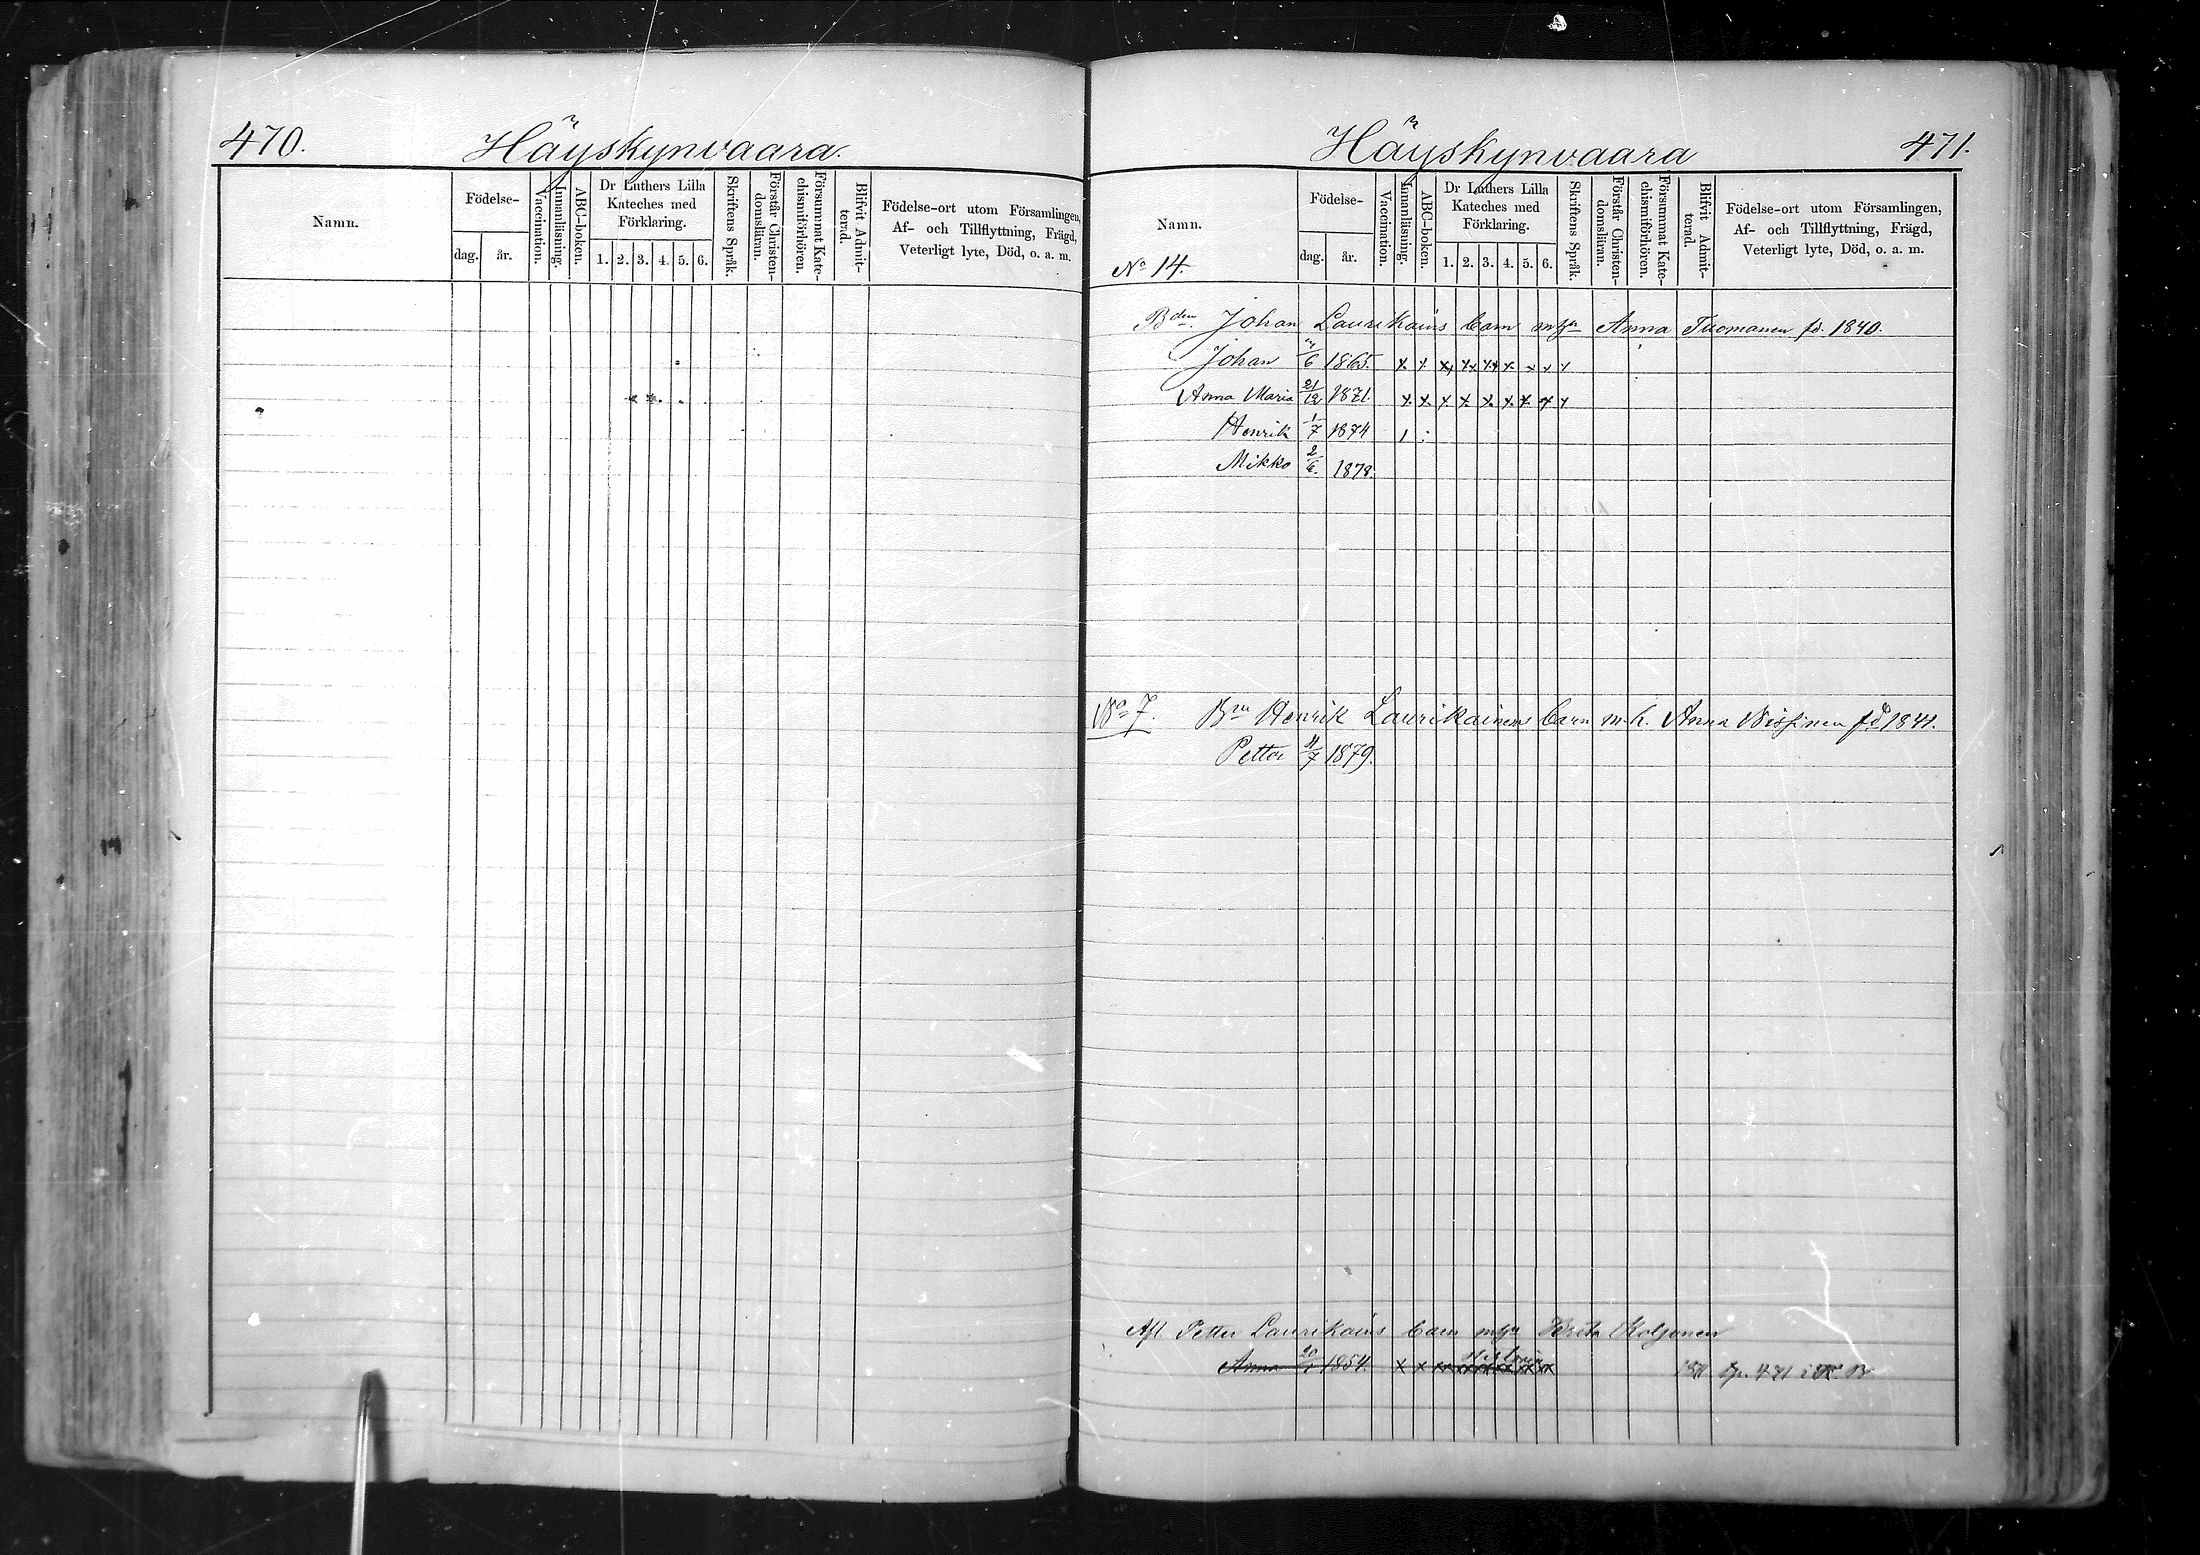 470. Häyskynvaara.
Namn.
Födelse-
dag. år.
Vaccination.
Innanläsning.
ABC-boken.
Dr Luthers Lilla
Kateches med
Förklaring.
1. 2. 3. 4. 5. 6.
Skriftens Språk.
Förstår Christen-
domsläran.
Försummat Kate-
chismiförhören.
Blifvit Admit-
terad.
Födelse-ort utom Församlingen,
Af- och Tillflyttning, Frägd,
Veterligt lyte, Död, o. a. m.
Häyskynvaara 471.
Namn.
No 14.
Födelse-
dag. år.
Vaccination.
Innanläsning.
ABC-boken.
Dr Luthers Lilla
Kateches med
Förklaring.
1. 2. 3. 4. 5. 6.
Skriftens Språk.
Förstår Christen-
domsläran.
Försummat Kate-
chismiförhören.
Blifvit Admit-
terad.
Födelse-ort utom Församlingen,
Af- och Tillflyttning, Frägd,
Veterligt lyte, Död, o. a. m.
Bden Johan Laurikains barn Anna Tuomanen fd. 1840.
Johan 1865. x x x x x x x x x
Anna Maria 21/12 1871. x x x x x x x x x
Henrik 1/7 1874
Mikko 2/6. 1878.
No 7. Henrik Laurikainens barn m. h. Anna fd 1841.
Petter 11/7 1879.
Afl Petter Laurikains barn Koljonen
Anna 1854. x x